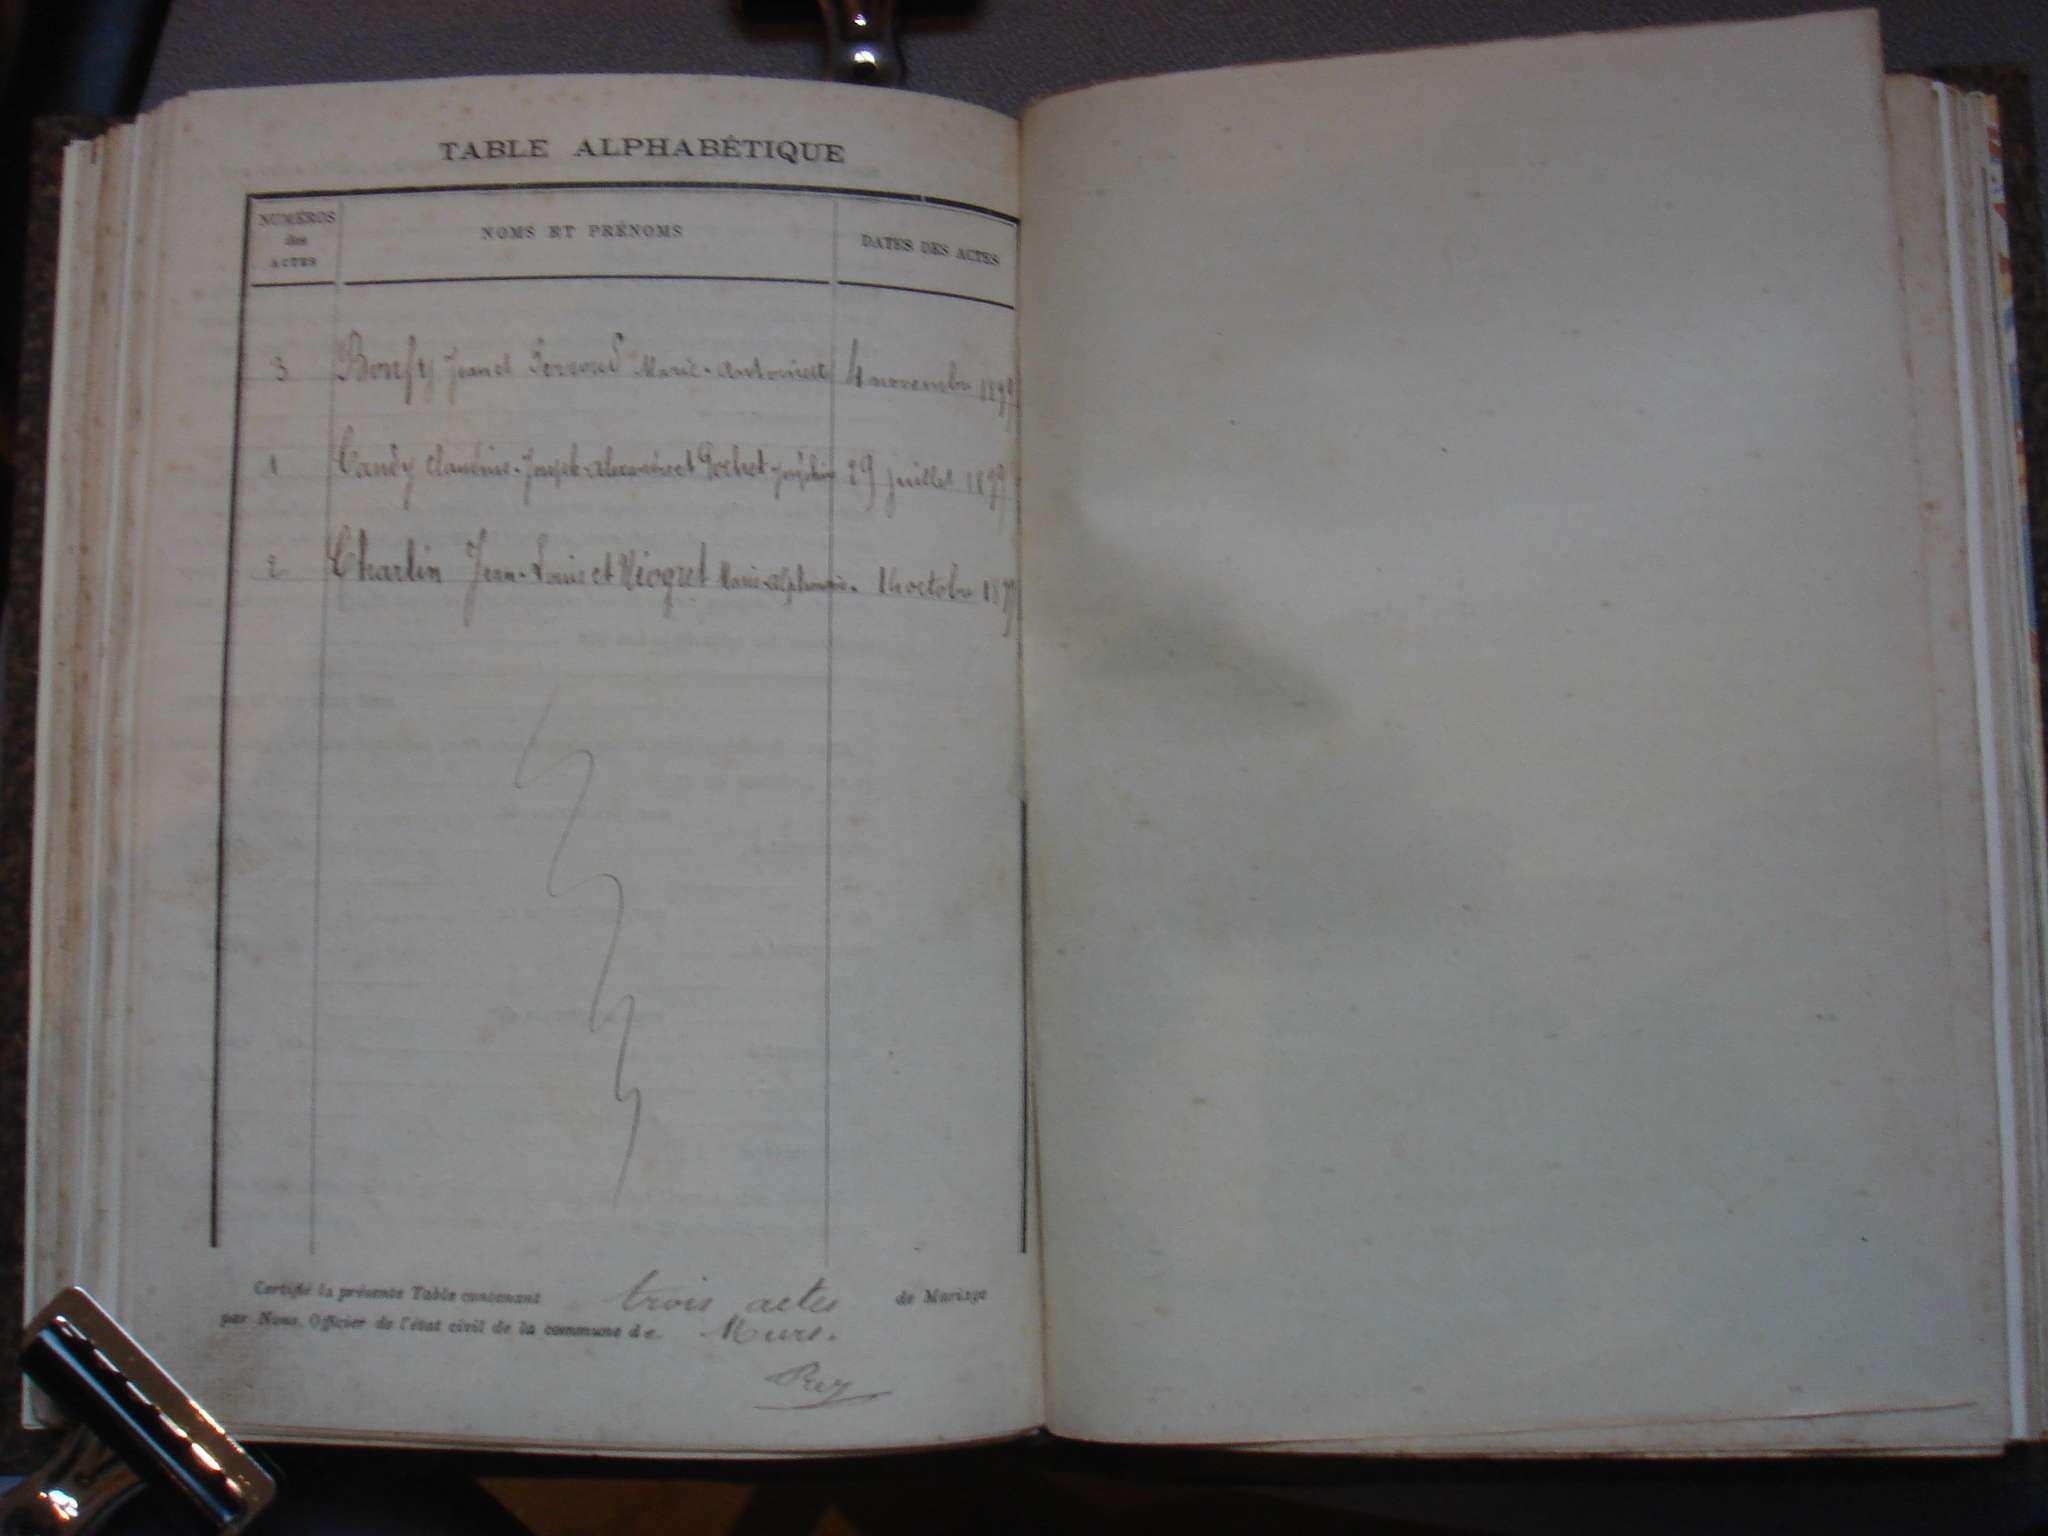 TABLE ALPHABÉTIQUE
NUMÉROS des ACTES
NOMS ET PRÉNOMS
DATES DES ACTES
3 Jean et Marie-Antoinette 4 novembre
1 Candy Joseph-Alexandre et Gochet Joséphine 29 juillet
2 Charlin Jean-Louis et Viogret Marie-Alphonsine. 14 octobre
Certifié la présente Table contenant trois actes de Mariage
par Nous, Officier de l'état civil de la commune de Murs.
Rey